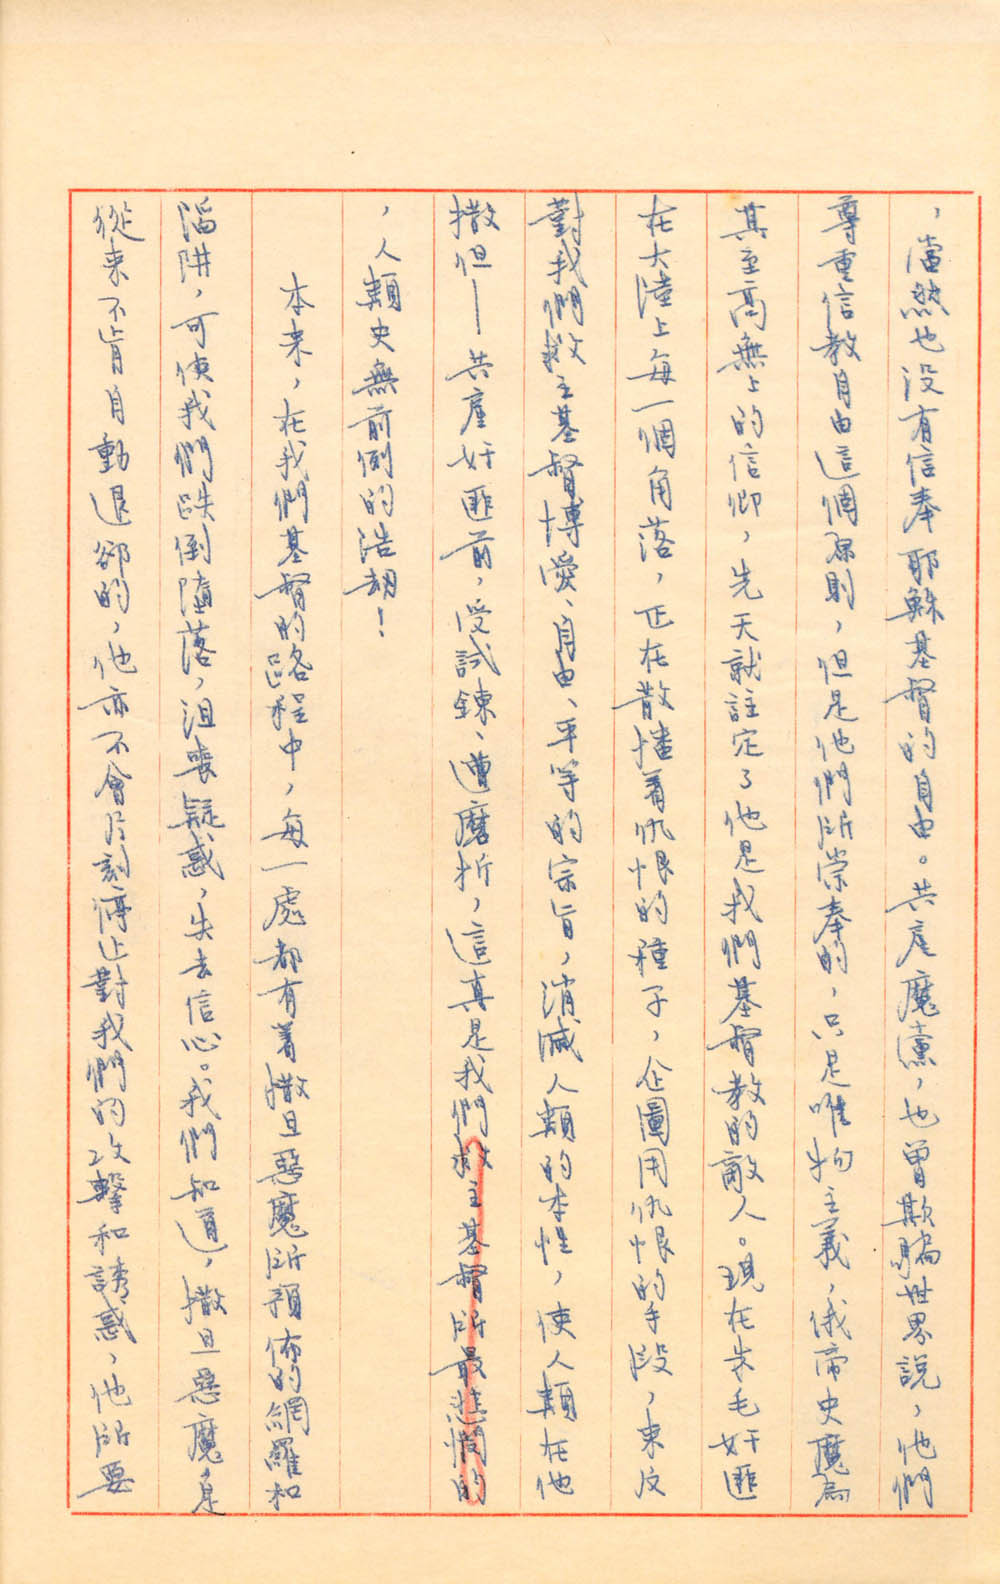 ，當然也没有信奉耶穌基督的自由。共產魔黨，也曾欺騙世界說，他們
尊重信教自由這個原則，但是他們所崇奉的，只是唯物主義，俄帝史魔為
其至高無上的信仰，先天就註定了他是我們基督教的敵人。現在朱毛奸匪
在大陸上每一個角落，正在散播着仇恨的種子，企圖用仇恨的手段，來反
對我們救主基督博愛、自由、平等的宗旨，消滅人類的本性，使人類在他
撒但—共產奸匪前，受試鍊、遭磨折，這真是我們救主基督所最悲憫的
，人類史無前例的浩劫！
本来，在我們基督的路程中，每一處都有着撒旦惡魔所預佈的網羅和
滔阱，可使我們跌倒墮落，沮喪疑惑，失去信心。我們知道，撒旦惡魔，是
從来不肯自動退卻的，他亦不會片刻停止對我們的攻擊和誘惑，他所要